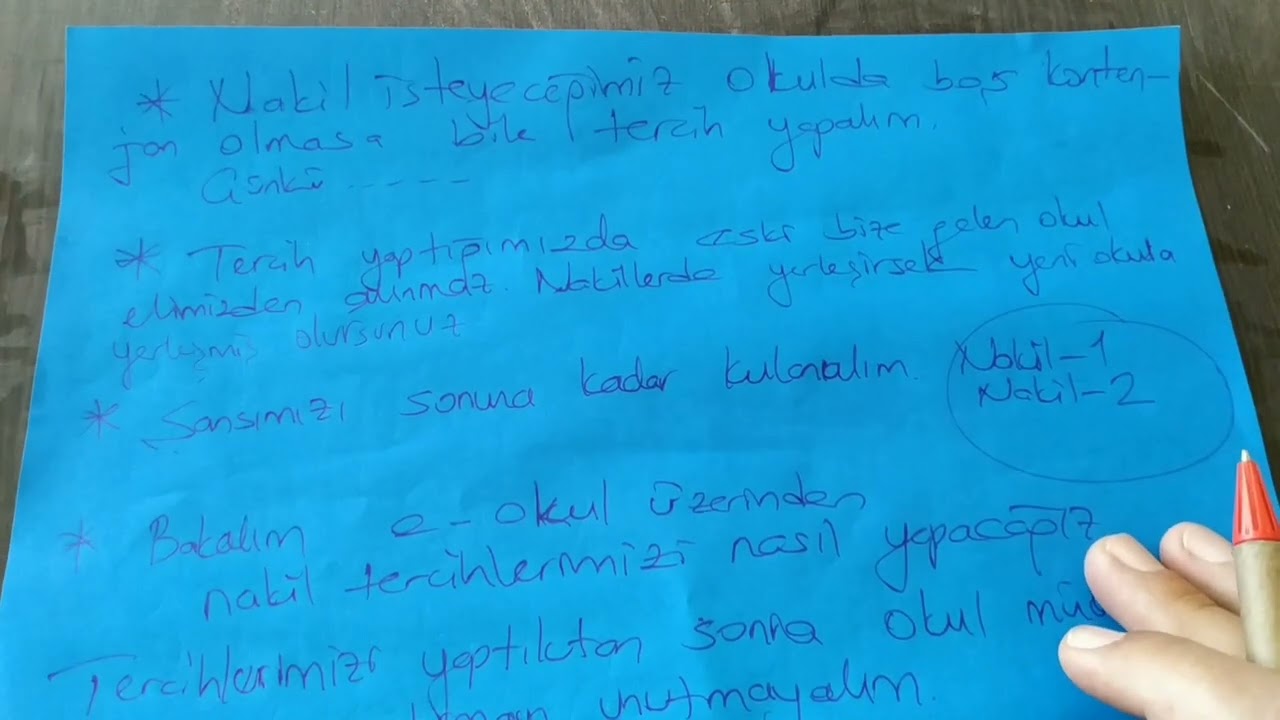 * Nakil isteyeceğimiz okulda boş konten-
jan olmasa bile tercih yapalım.
Çünkü -----
* Tercih yaptığımızda eski bize gelen okul
elimizden alınmaz. Nakillerde yerleşirsek yeni okula
yerleşmiş olursunuz
* Şansımızı sonuna kadar kulanalım.
Nakil-1
Nakil-2
* Bakalım e-okul üzerinden
nakil tercihlerimizi nasıl yapacağız
Tercihlerimizi yaptıktan sonra okul
unutmayalım.